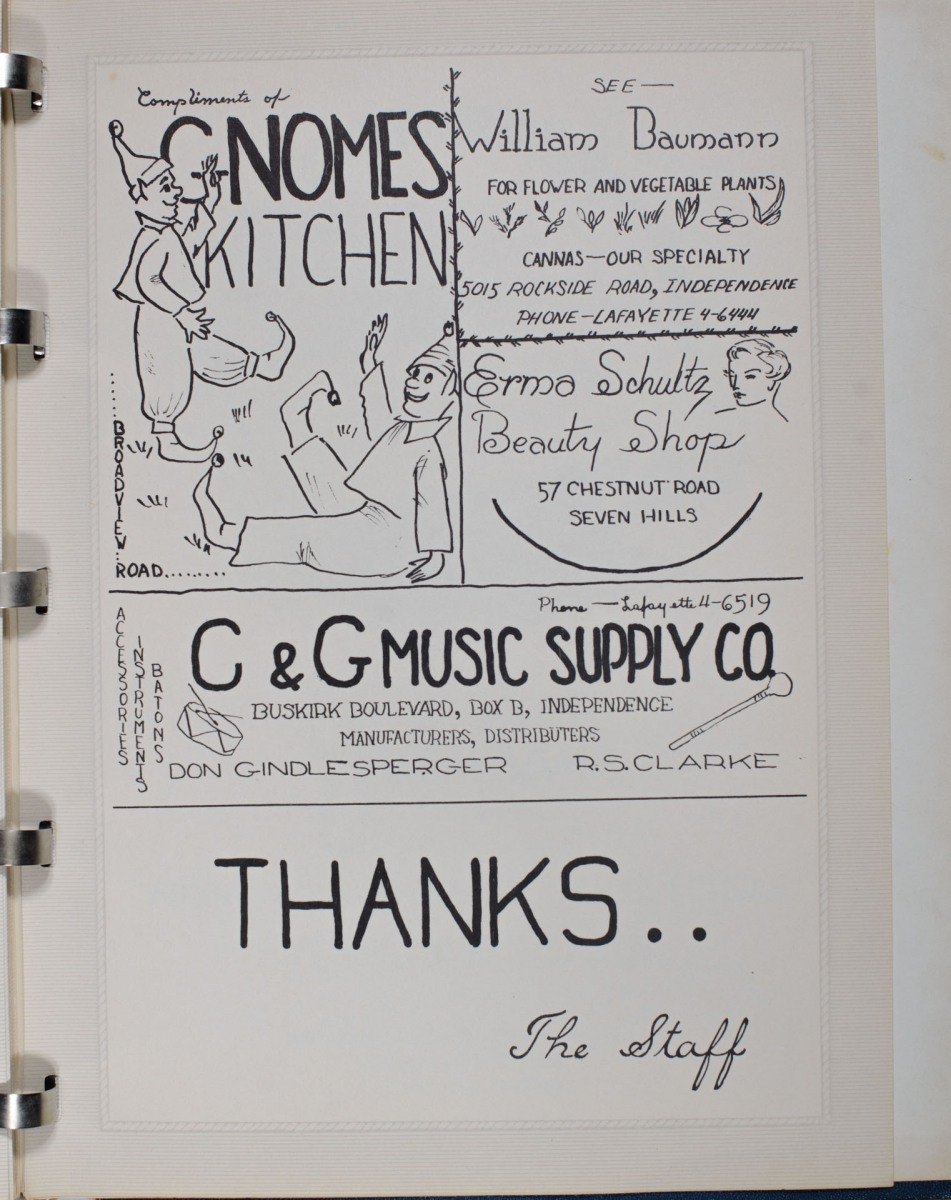 Compliments of
GNOMES
KITCHEN
BROADVIEW
ROAD........
SEE —
William Baumann
FOR FLOWER AND VEGETABLE PLANTS
CANNAS — OUR SPECIALTY
5015 ROCKSIDE ROAD, INDEPENDENCE
PHONE — LAFAYETTE 4-6444
Erma Schultz
Beauty Shop
57 CHESTNUT ROAD
SEVEN HILLS
Phone — Lafayette 4-6519
C & G MUSIC SUPPLY CO.
ACCESSORIES
INSTRUMENTS
BATONS
BUSKIRK BOULEVARD, BOX B, INDEPENDENCE
MANUFACTURERS, DISTRIBUTERS
DON GINDLESPERGER R.S. CLARKE
THANKS..
The Staff